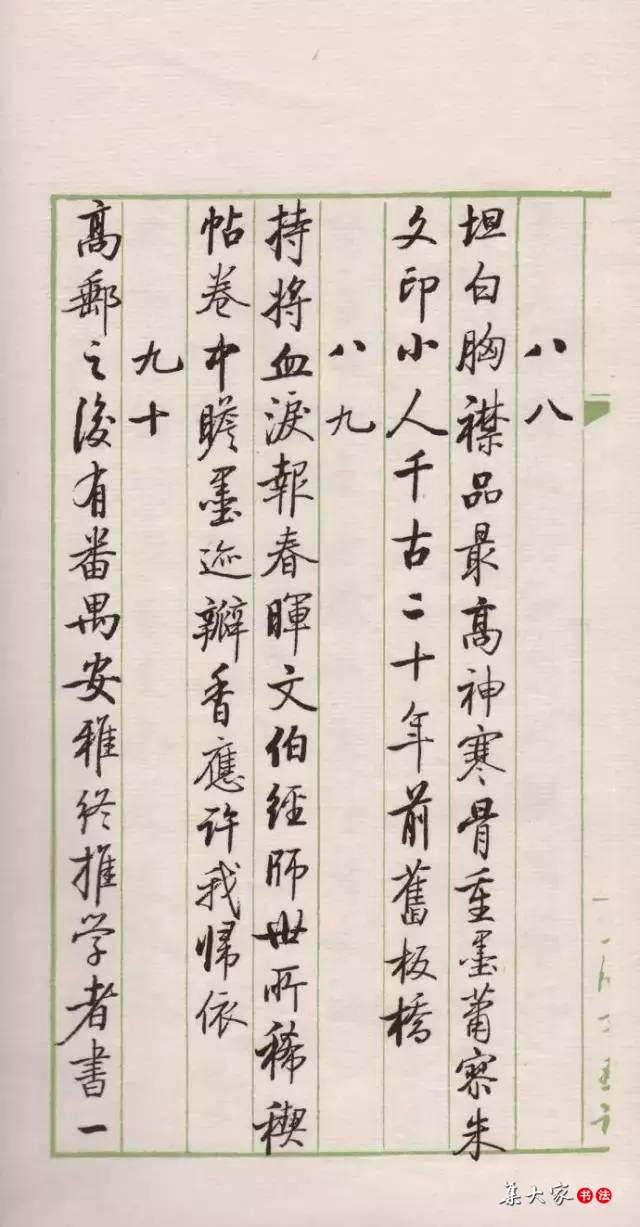 八八
坦白胸襟品最高神寒骨重墨萧寥朱
文印小人千古二十年前舊板橋
八九
持將血淚報春暉文伯經師世所稀禊
帖卷中瞻墨迹瓣香應许我归依
九十
高郵之後有番禺安雅终推学者書一
集大家书法